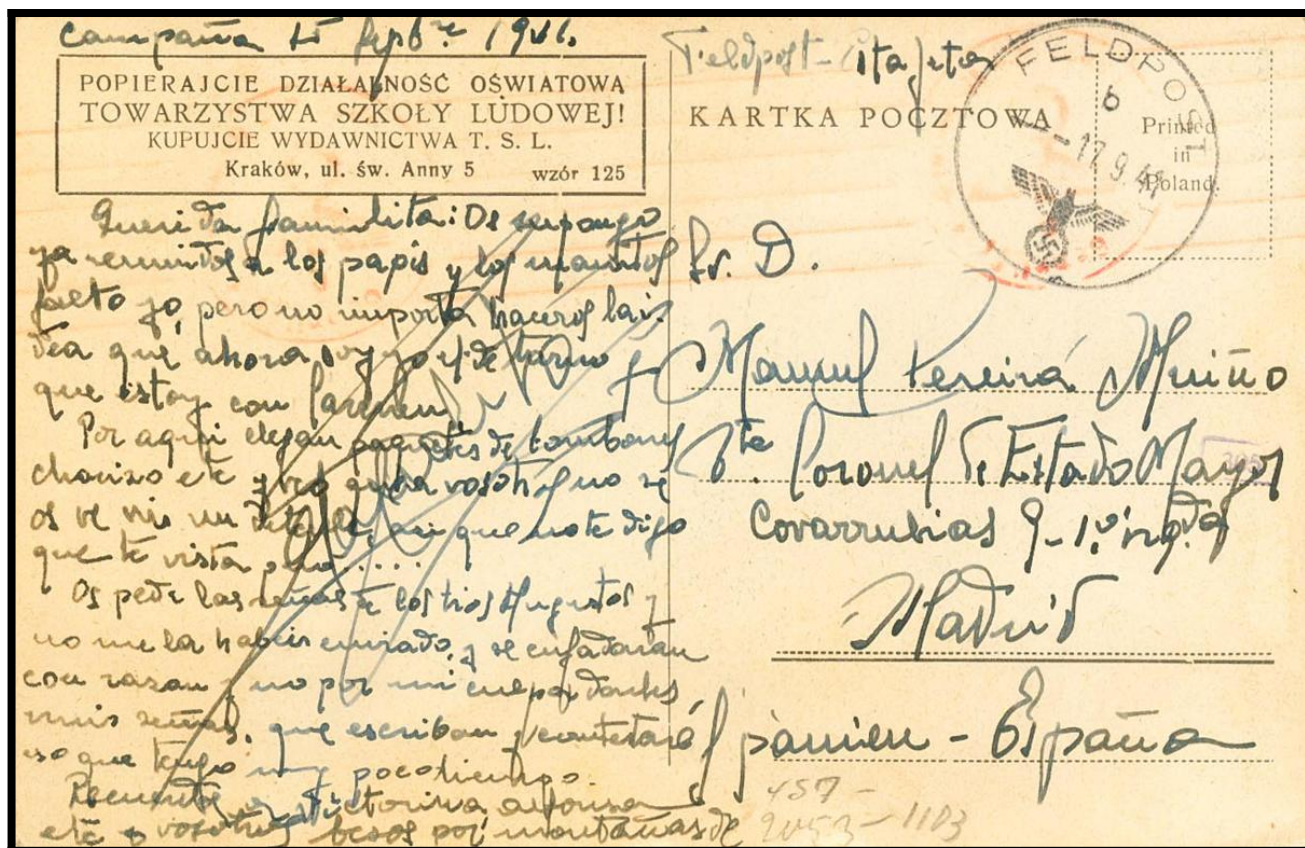 Campaña 15 Sepbre 1941.
POPIERAJCIE DZIAŁALNOŚĆ OŚWIATOWA
TOWARZYSTWA SZKOŁY LUDOWEJ!
KUPUJCIE WYDAWNICTWA T. S. L.
Kraków, ul. św. Anny 5 wzór 125
Querida familita: Os supongo
ya reunidos a los papis y los
falto yo, pero no importa haceros la i-
dea que ahora soy yo el de turno
que estoy con
Por aqui llegan paquetes de
chorizo etc y veo que a vosotros no se
os ve ni un detalle, asi que no te digo
que te vista pero.....
Os pedi las señas de los tios Augustos y
no me la habeis enviado, y se enfadaran
con razon y no por mi culpa, darles
mis señas, que escriban y contestaré
eso que tengo muy poco tiempo.
Recuerdos a Victorina
etc a vosotros besos por montañas de
Feldpost - Estafeta
KARTKA POCZTOWA
FELDPOST
b
17.9.41
Printed
in
Poland.
Sr. D.
Manuel Pereira Muiño
Tte. Coronel de Estado Mayor
Covarrubias 9 - 1º izqda
Madrid
Spanien - España
457 -
2053 - 1103